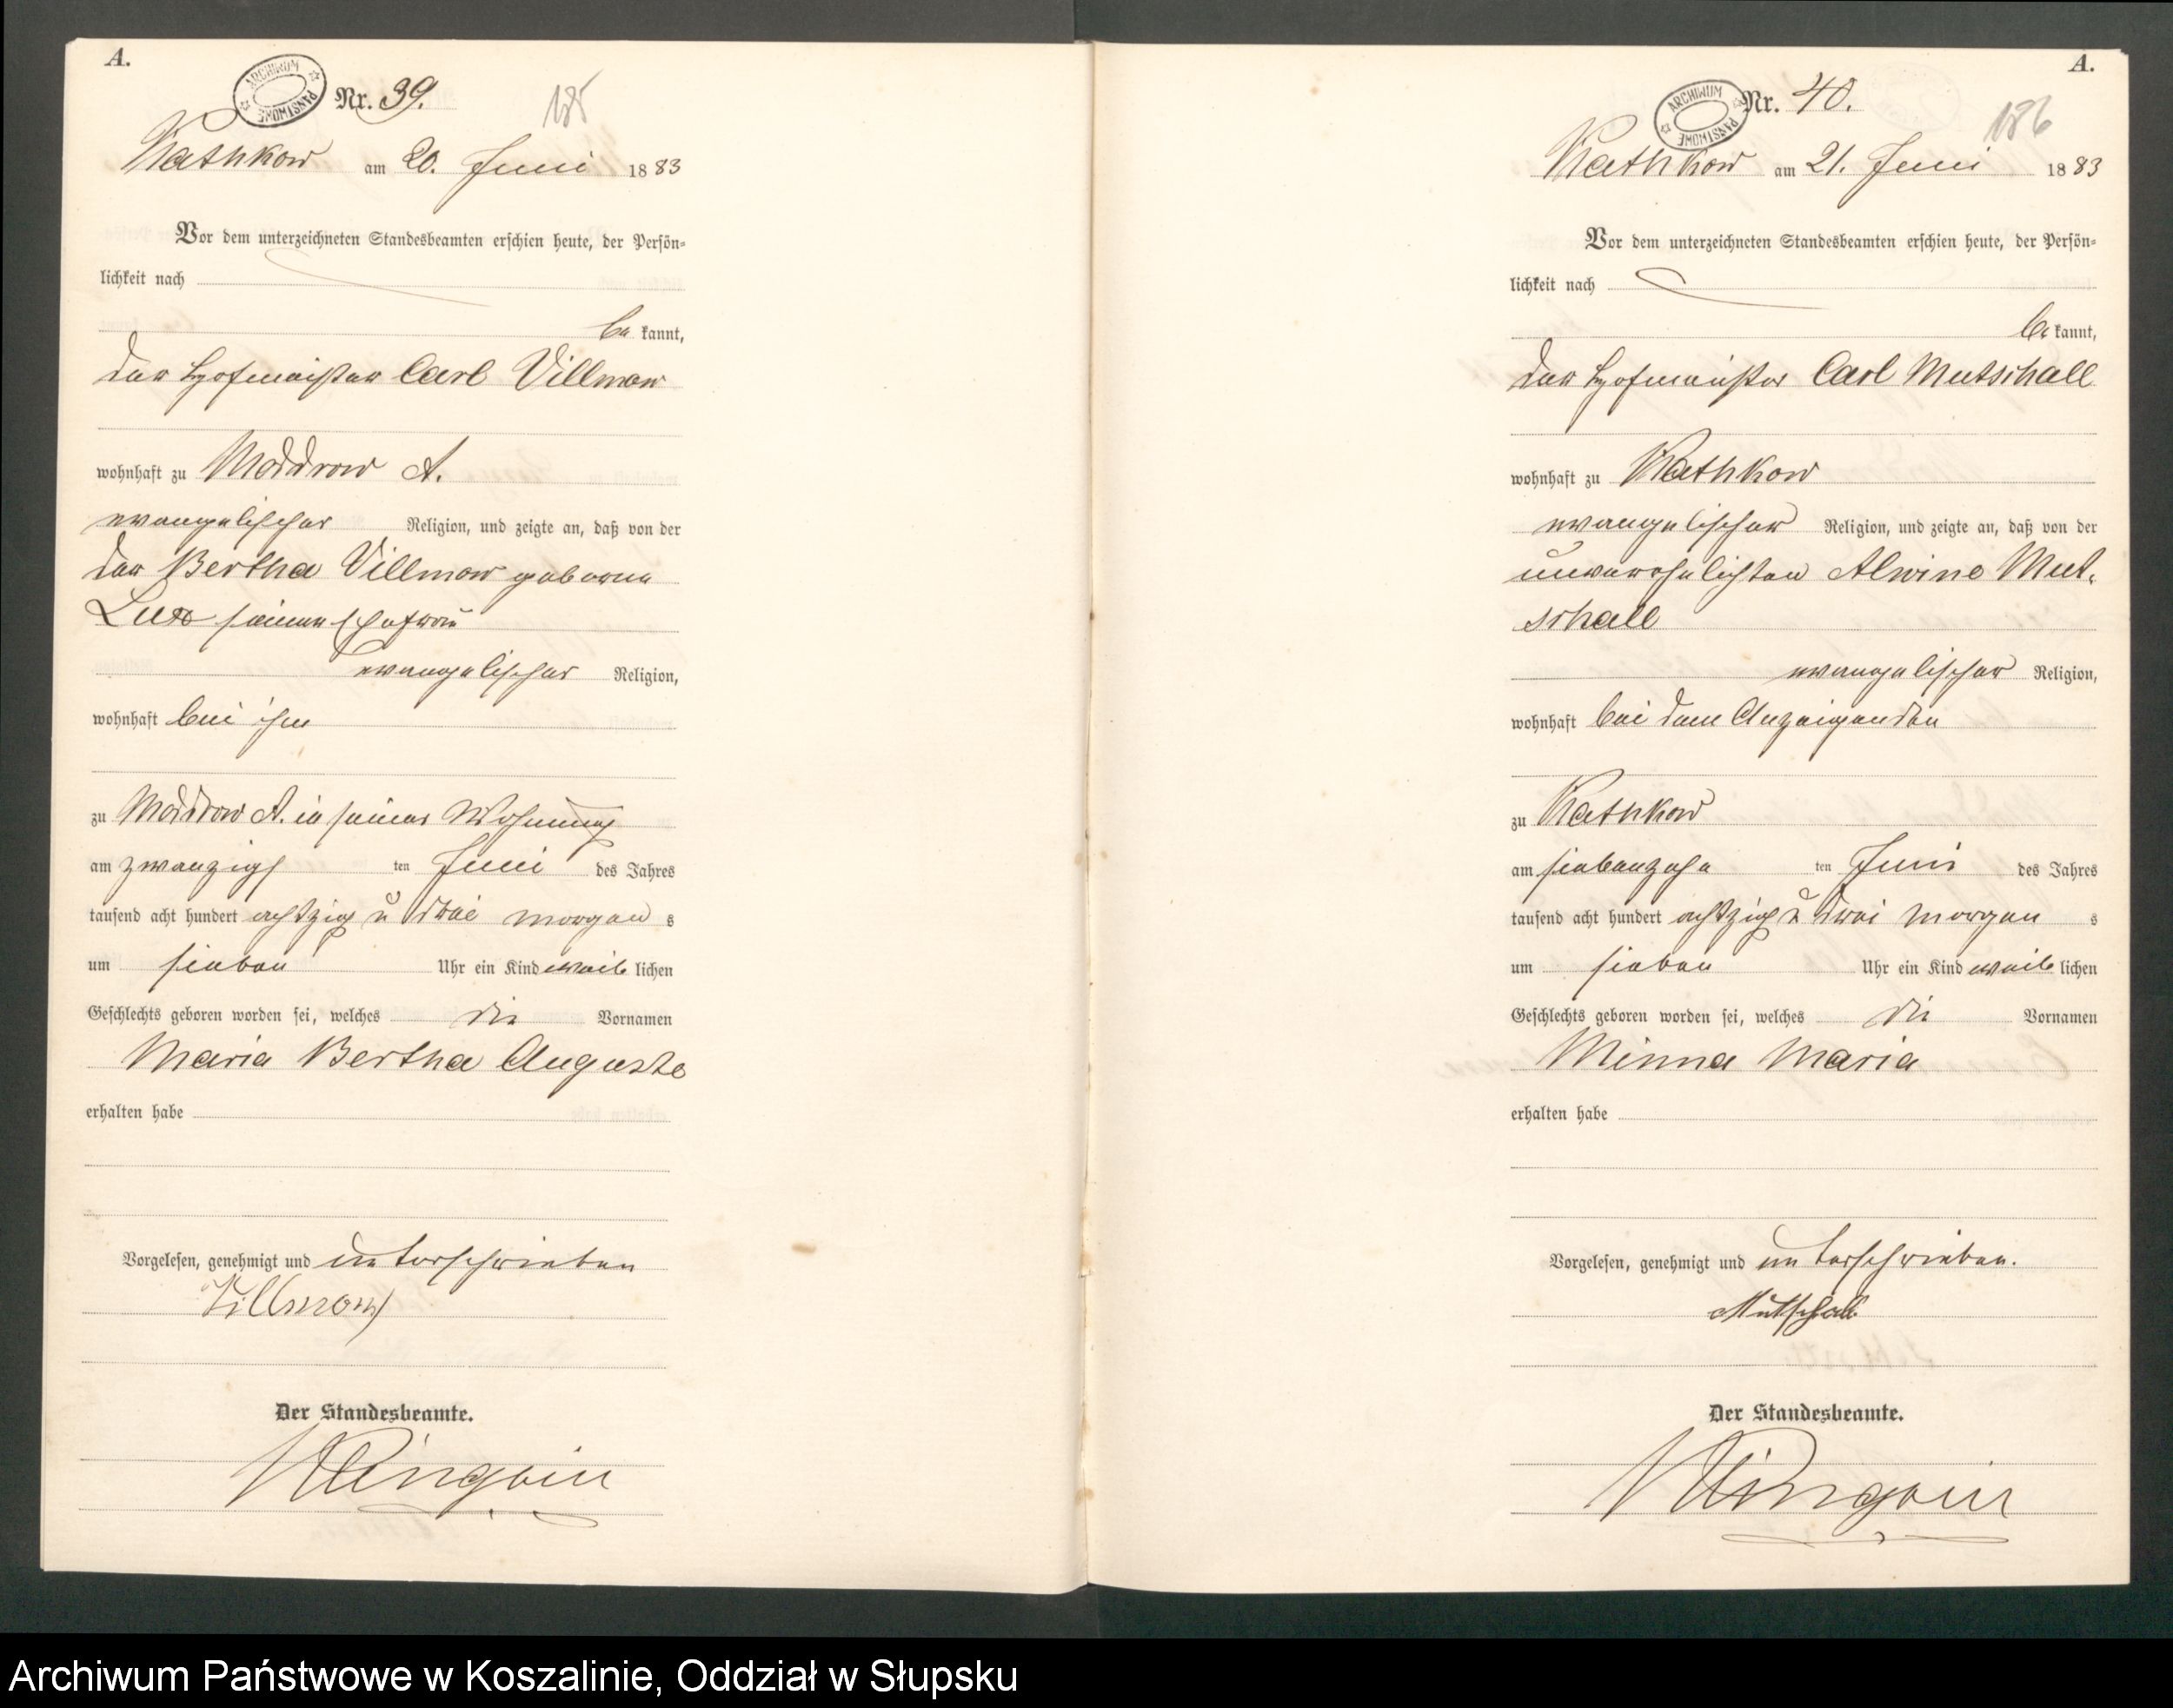 A.
ARCHIWUM PAŃSTWOWE
Nr. 39.
185
Rathkow am 20. Juni 1883
Vor dem unterzeichneten Standesbeamten erschien heute, der Persön-
lichkeit nach
be kannt,
der Hofmeister Carl Villmow
wohnhaft zu Moddrow A.
evangelischer Religion, und zeigte an, daß von der
der Bertha Villmow geborene
seiner Ehefrau
evangelischer Religion,
wohnhaft bei ihm
zu Moddrow A. in seiner Wohnung
am zwanzigs ten Juni des Jahres
tausend acht hundert achtzig u drei morgen s
um sieben Uhr ein Kind weib lichen
Geschlechts geboren worden sei, welches die Vornamen
Maria Bertha Auguste
erhalten habe
Vorgelesen, genehmigt und unterschrieben
Villmow
Der Standesbeamte.
A.
ARCHIWUM PAŃSTWOWE
Nr. 40.
186
Rathkow am 21. Juni 1883
Vor dem unterzeichneten Standesbeamten erschien heute, der Persön-
lichkeit nach
be kannt,
der Hofmeister Carl Mutschall
wohnhaft zu Rathkow
evangelischer Religion, und zeigte an, daß von der
unverehelichten Alwine Mut-
schall
evangelischer Religion,
wohnhaft bei dem Anzeigenden
zu Rathkow
am siebenzehn ten Juni des Jahres
tausend acht hundert achtzig u drei morgen s
um sieben Uhr ein Kind weib lichen
Geschlechts geboren worden sei, welches die Vornamen
Minna Maria
erhalten habe
Vorgelesen, genehmigt und unterschrieben.
Mutschall
Der Standesbeamte.
Archiwum Państwowe w Koszalinie, Oddział w Słupsku